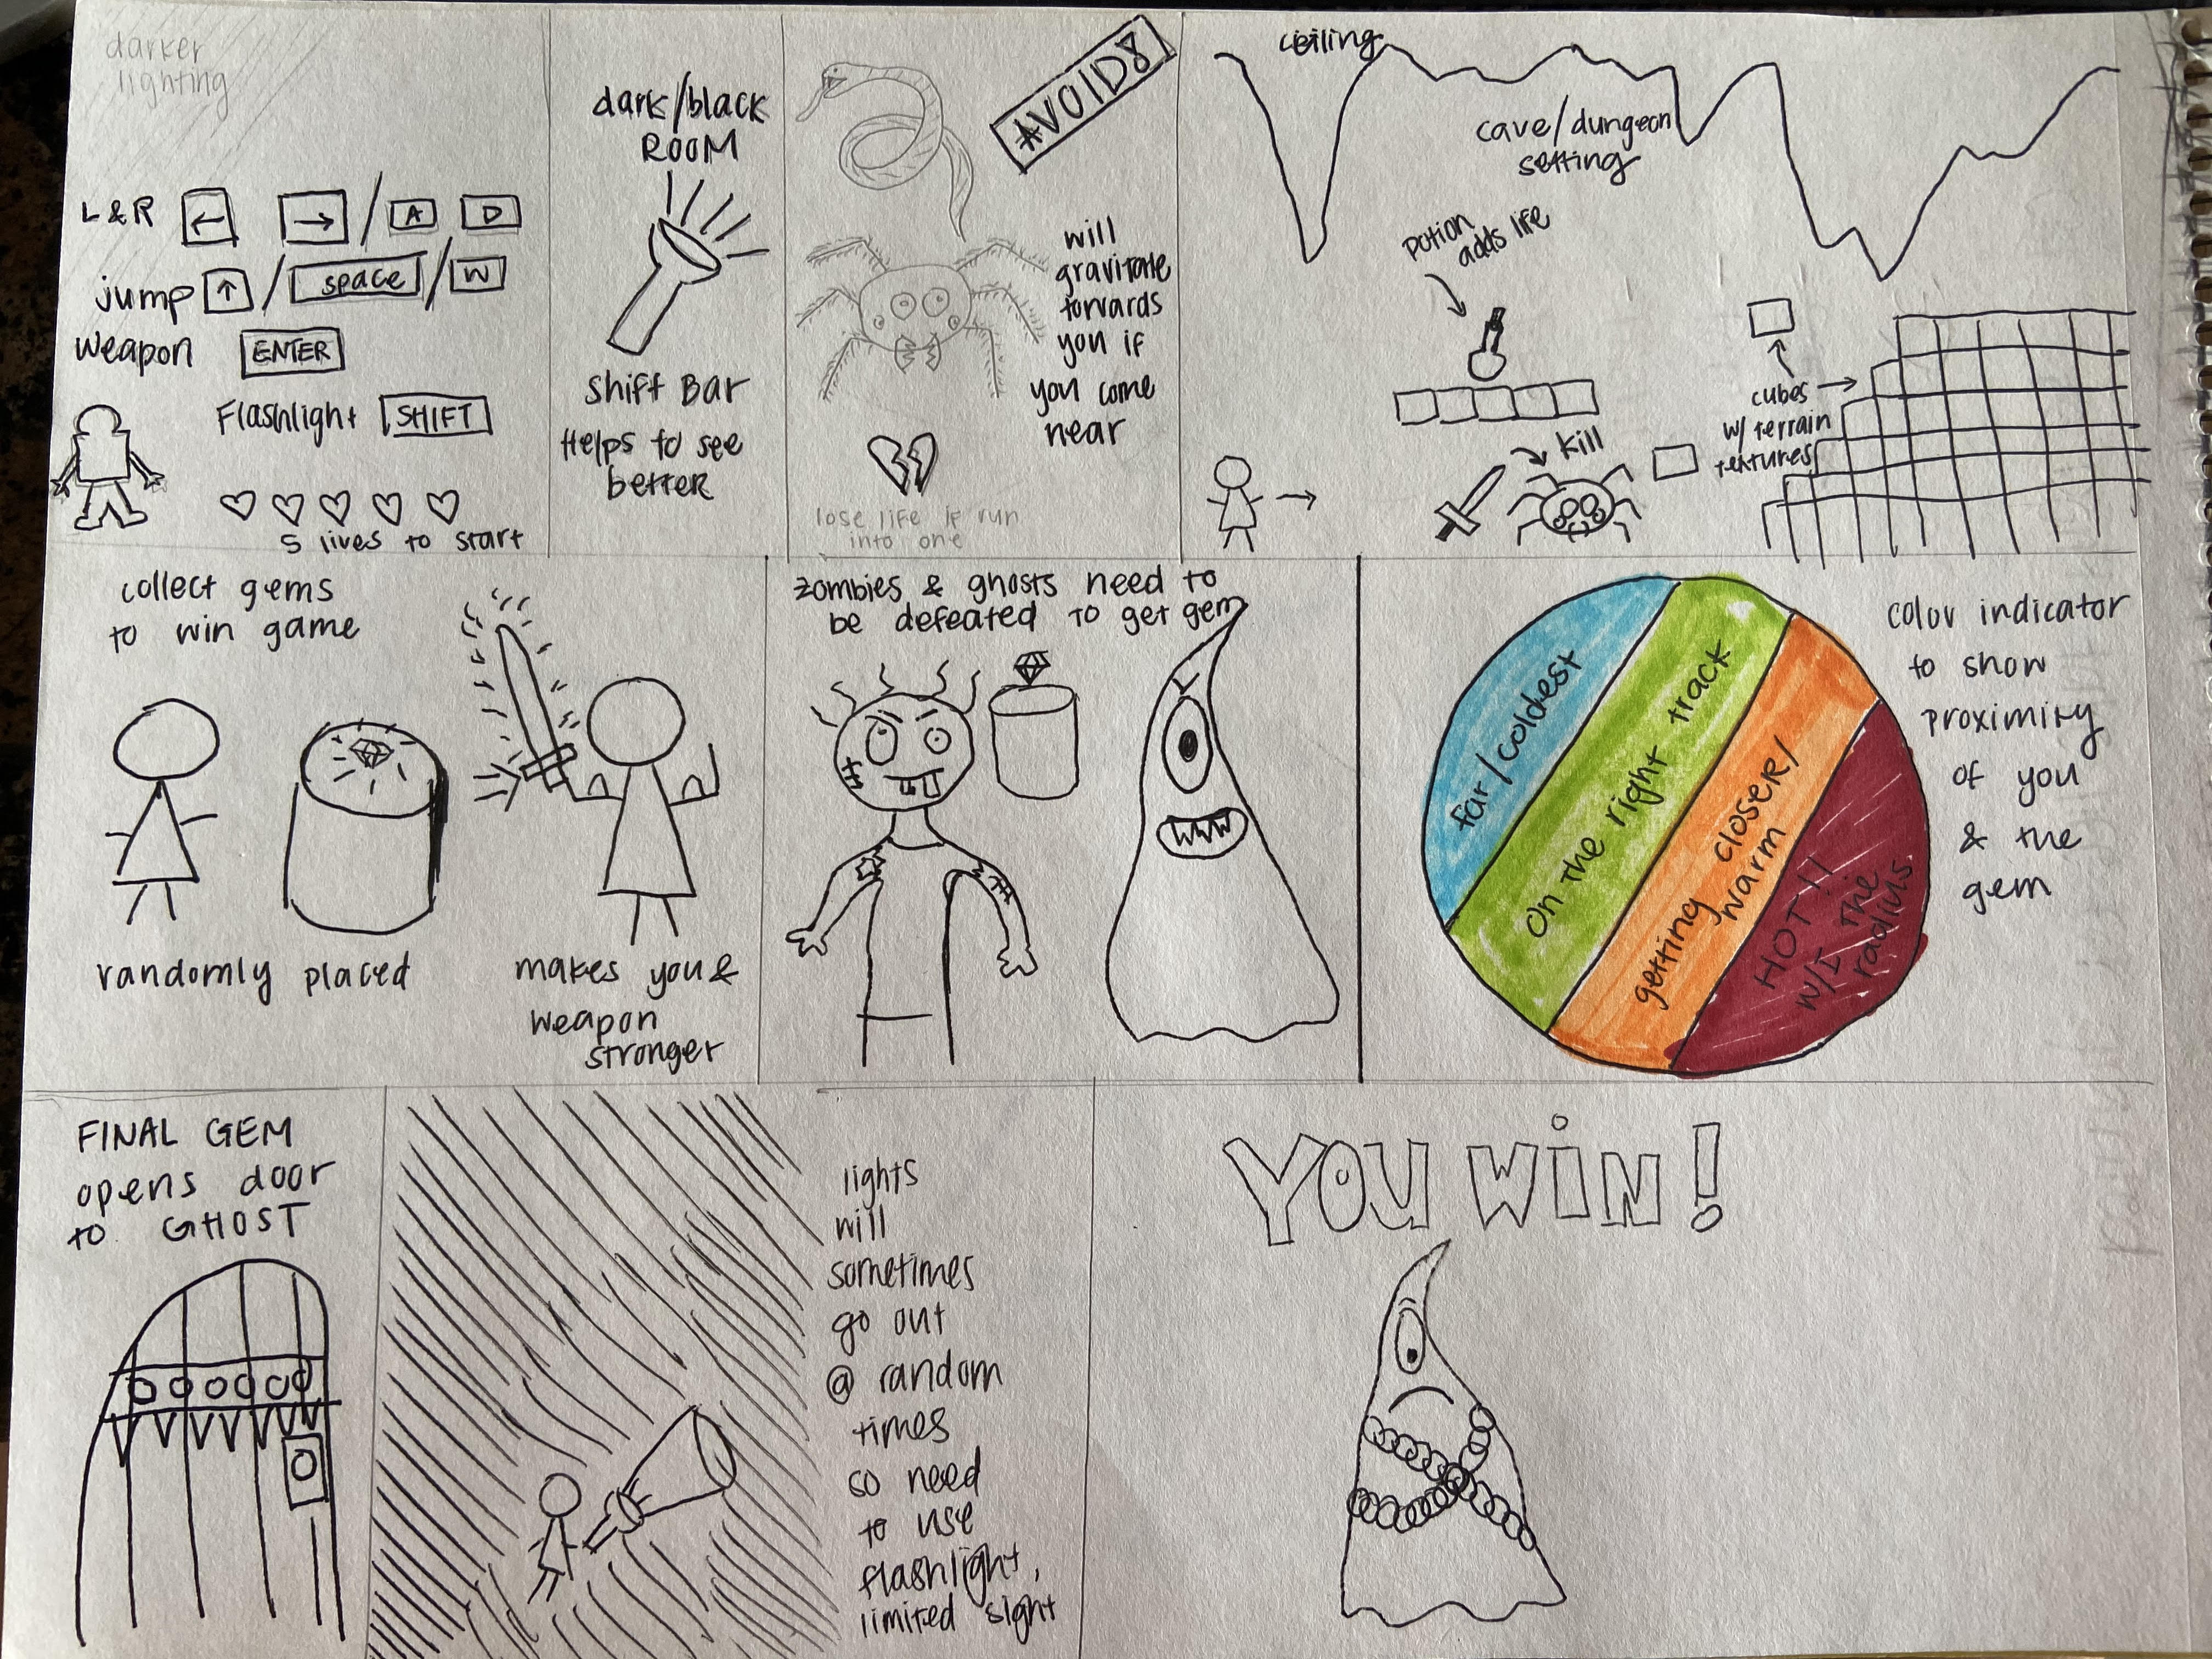 darker
lighting
L & R ← → / A D
jump ↑ / space / W
weapon ENTER
Flashlight SHIFT
5 lives to start
dark/black
ROOM
Shift Bar
Helps to see
better
AVOID
will
gravitate
towards
you if
you come
near
lose life if run
into one
ceiling
cave/dungeon
setting
potion
adds life
kill
cubes
w/ terrain
textures
collect gems
to win game
randomly placed
makes you &
weapon
stronger
zombies & ghosts need to
be defeated to get gem
far/coldest
On the right track
getting closer/
warm
HOT!!
W/I the
radius
color indicator
to show
proximity
of you
& the
gem
FINAL GEM
opens door
to GHOST
lights
will
sometimes
go out
@ random
times
so need
to use
flashlight,
limited sight
YOU WIN!